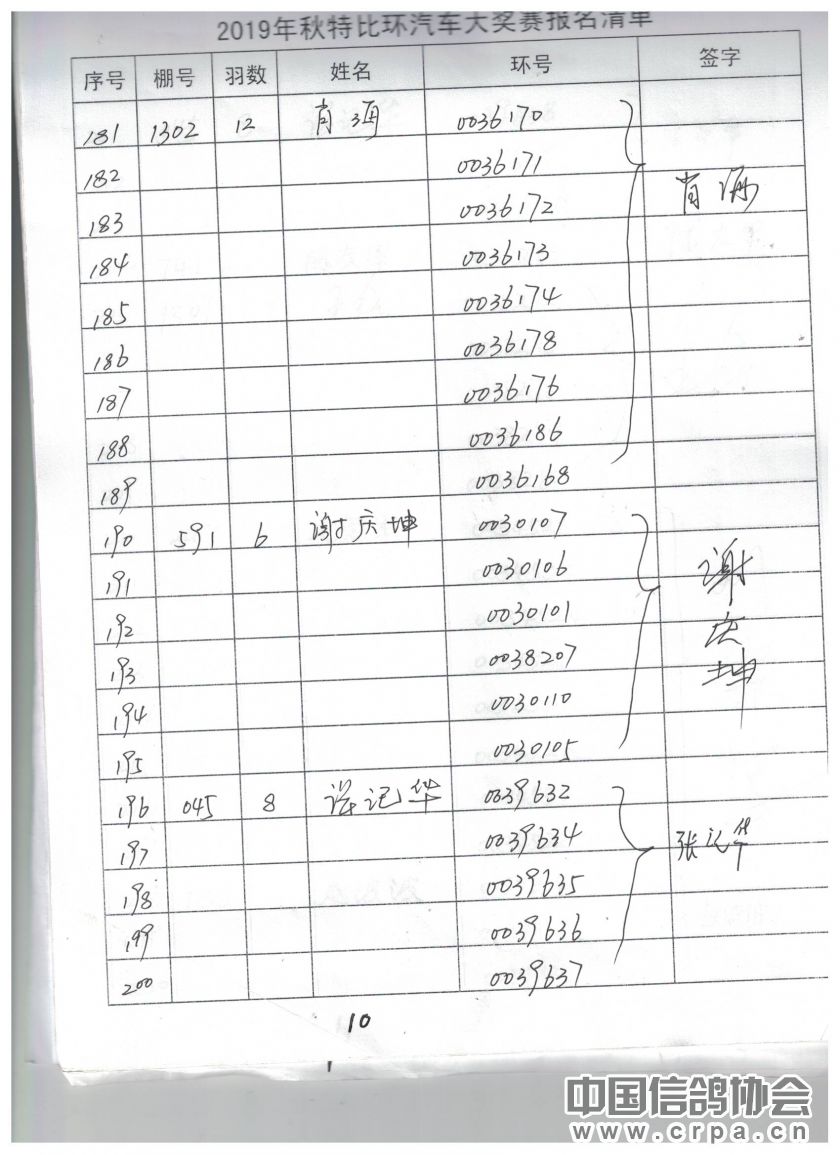 2019年秋特比环汽车大奖赛报名清单
序号 棚号 羽数 姓名 环号 签字
181 1302 12 肖 0036170
182 0036171
183 0036172 肖
184 0036173
185 0036174
186 0036178
187 0036176
188 0036186
189 0036168
190 591 6 谢庆坤 0030107
191 0030106 谢庆坤
192 0030101
193 0038207
194 0030110
195 0030105
196 045 8 记华 0039632
197 0039634 张记华
198 0039635
199 0039636
200 0039637
10
中国信鸽协会
www.crpa.cn